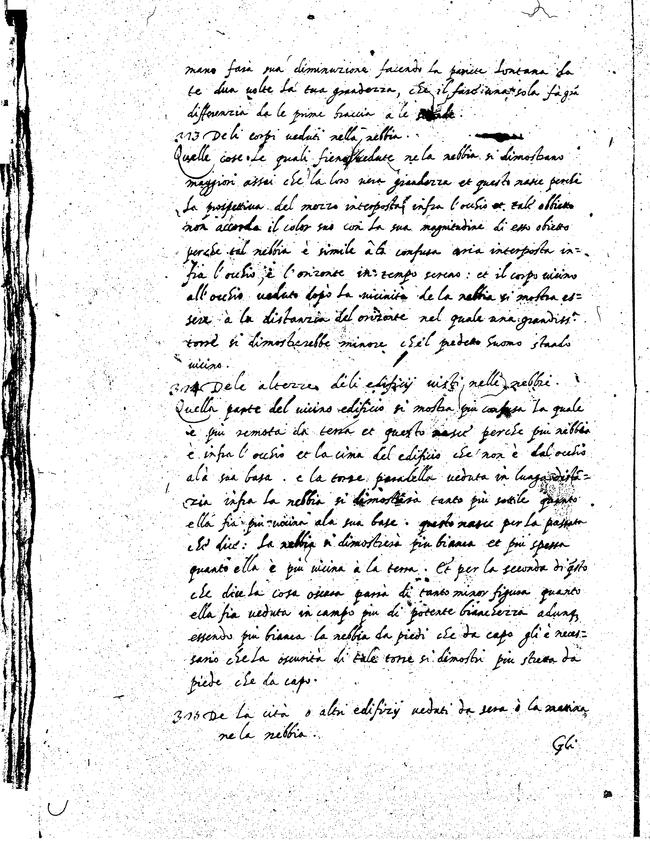 mano farà sua diminuzione facendo la pariete lontana da
te dua volte la tua grandezza, che il farsi una sola fa gra
differenzia da le prime braccia a le
313 Deli corpi veduti nella nebbia.
Quelle cose le quali fieno vedute ne la nebbia si dimostrano
maggiori assai che la loro vera grandezza et questo nasce perche
la prospettiva del mezzo interposta infra l'occhio et tale obbietto
non accorda il color suo con la sua magnitudine di esso obietto
perche tal nebbia è simile à la confusa aria interposta in=
fra l'occhio, e l'orizonte in tempo sereno: et il corpo vicino
all'occhio veduto dopo la vicinità de la nebbia si mostra es=
sere à la distanzia del orizonte nel quale una grandiss.
torre si dimosterebbe minore che'l predetto huomo stando
vicino.
314 Dele altezze deli edifizij visti nelle nebbie.
Quella parte del vicino edificio si mostra più confusa la quale
è più remota da terra et questo nasce perche più nebbia
è infra l'occhio et la cima del edificio che non è dal occhio
alà sua basa. e la torre paralella veduta in lunga distā=
zia infra la nebbia si dimosterà tanto più sottile quanto
ella fia più vicina ala sua base. questo nasce per la passata
che dice: La nebbia si dimosterà più bianca et più spessa
quanto ella è più vicina à la terra. Et per la seconda di q̃sto
che dice la cosa oscura parrà di tanto minor figura quanto
ella fia veduta in campo più di potente bianchezza adunq,
essendo più bianca la nebbia da piedi che da capo gli è neces=
sario che la oscurità di tale torre si dimostri più stretta da
piede che da capo.
315 De la cità o altri edifizij veduti da sera ò la matina
ne la nebbia.
Gli